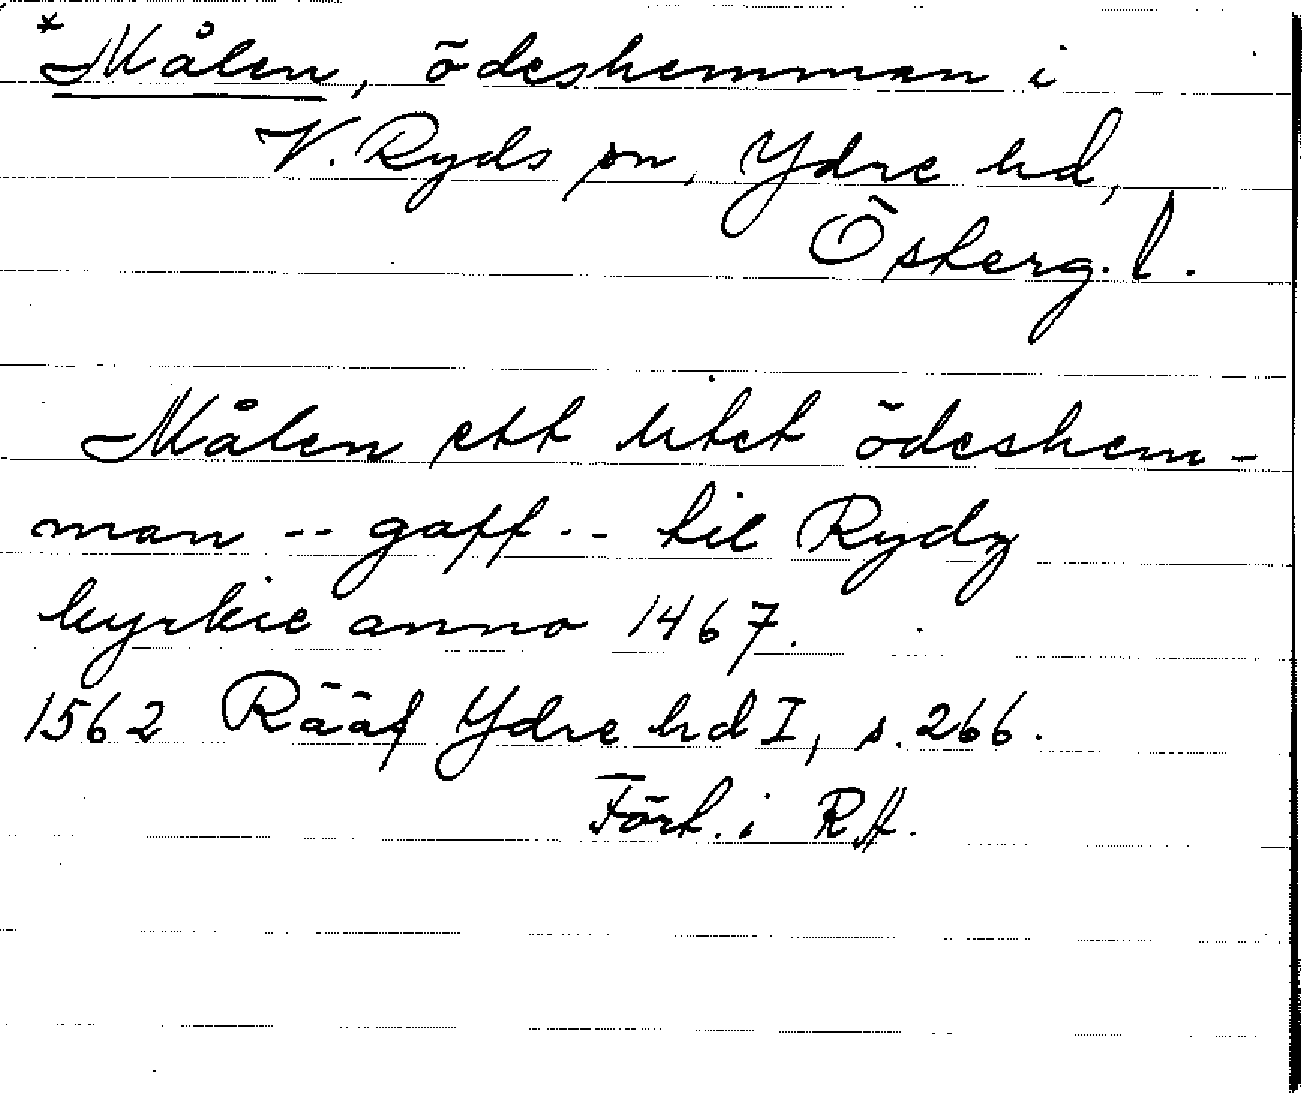 *Målen, ödeshemman i
V. Ryds sn, Ydre hd,
Österg. l.
Målen ett litet ödeshem-
man -- gaff -- til Rydz
kyrkie anno 1467.
1562 Rääf Ydre hd I, s. 266.
Förk. i RA.